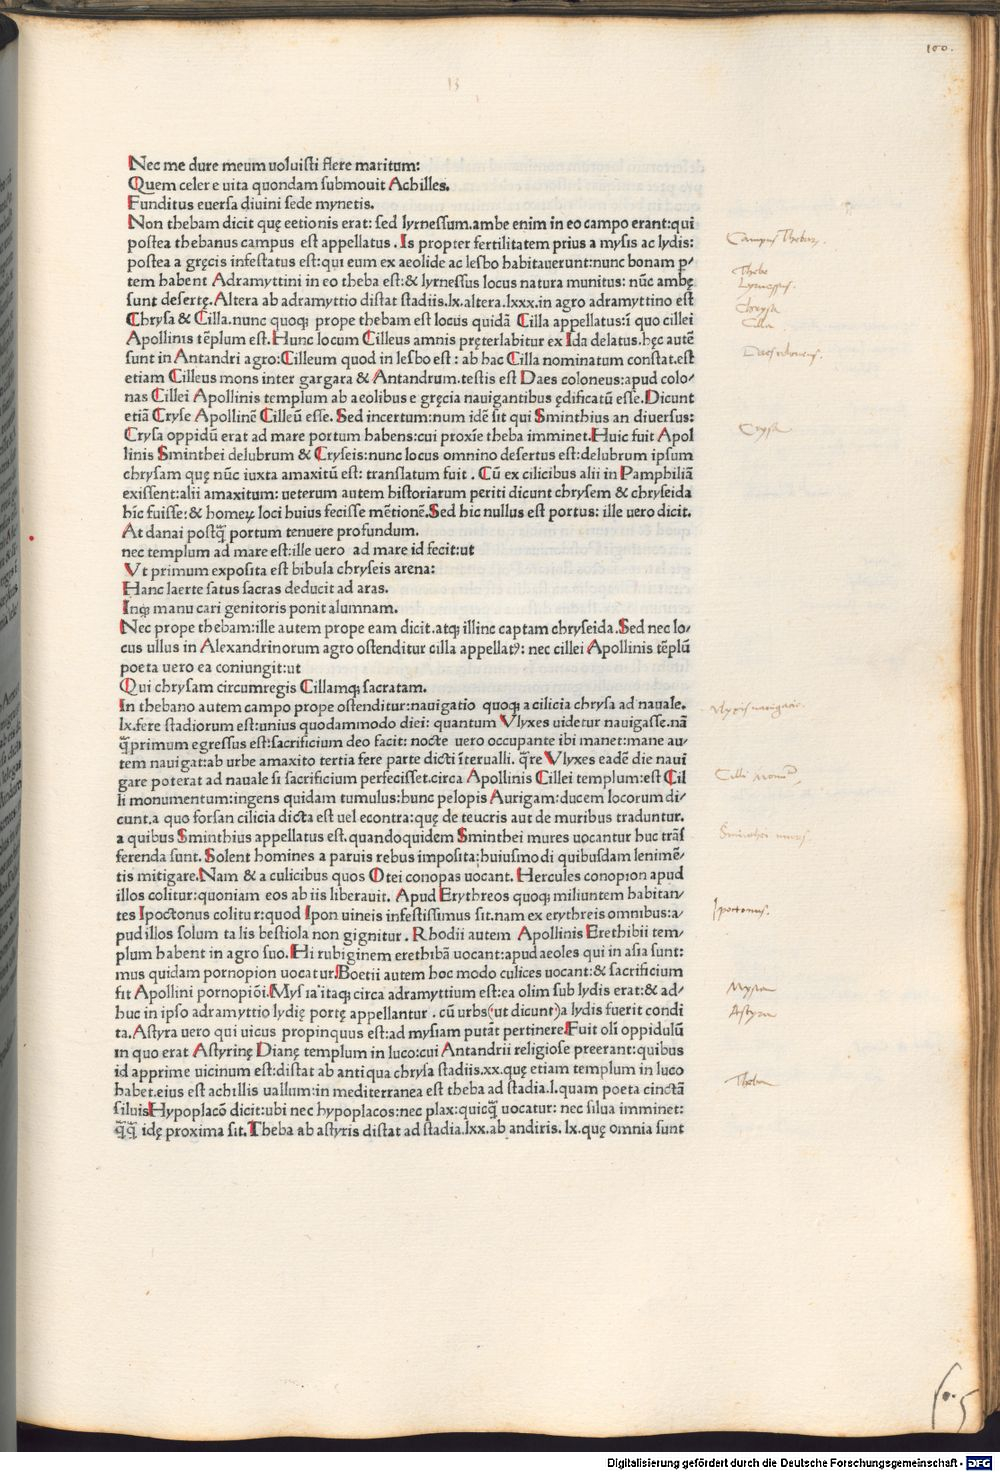 100.
13
Nec me dure meum uoluisti flere maritum:
Quem celer e uita quondam submouit Achilles.
Funditus euersa diuini sede mynetis.
Non thebam dicit quę eetionis erat: sed lyrnessum.ambe enim in eo campo erant:qui
postea thebanus campus est appellatus. Is propter fertilitatem prius a mysis ac lydis:
postea a gręcis infestatus est:qui eum ex aeolide ac lesbo habitauerunt:nunc bonam ꝑ-
tem habent Adramyttini in eo theba est:& lyrnessus locus natura munitus: nūc ambę
sunt desertę.Altera ab adramyttio distat stadiis.lx.altera.lxxx.in agro adramyttino est
Chrysa & Cilla.nunc quoqꝫ prope thebam est locus quidā Cilla appellatus:ī quo cillei
Apollinis tēplum est.Hunc locum Cilleus amnis pręterlabitur ex Ida delatus.hęc autē
sunt in Antandri agro:Cilleum quod in lesbo est: ab hac Cilla nominatum constat.est
etiam Cilleus mons inter gargara & Antandrum.testis est Daes coloneus:apud colo-
nas Cillei Apollinis templum ab aeolibus e gręcia nauigantibus ędificatū esse.Dicunt
etiā Cryse Apollinē Cilleū esse. Sed incertum:num idē sit qui Sminthius an diuersus:
Crysa oppidū erat ad mare portum habens:cui proxīe theba imminet.Huic fuit Apol
linis Sminthei delubrum & Cryseis:nunc locus omnino desertus est:delubrum ipsum
chrysam quę nūc iuxta amaxitū est: translatum fuit. Cū ex cilicibus alii in Pamphiliā
exissent:alii amaxitum: ueterum autem historiarum periti dicunt chrysem & chryseida
hīc fuisse:& homeꝝ loci huius fecisse mētionē.Sed hic nullus est portus: ille uero dicit.
At danai postq̄ portum tenuere profundum.
nec templum ad mare est:ille uero ad mare id fecit:ut
Vt primum exposita est bibula chryseis arena:
Hanc laerte satus sacras deducit ad aras.
Inqꝫ manu cari genitoris ponit alumnam.
Nec prope thebam:ille autem prope eam dicit.atqꝫ illinc captam chryseida.Sed nec lo-
cus ullus in Alexandrinorum agro ostenditur cilla appellatꝰ: nec cillei Apollinis tēplū
poeta uero ea coniungit:ut
Qui chrysam circumregis Cillamqꝫ sacratam.
In thebano autem campo prope ostenditur:nauigatio quoqꝫ a cilicia chrysa ad nauale.
lx.fere stadiorum est:unius quodammodo diei: quantum Vlyxes uidetur nauigasse.nā
q̄primum egressus est:sacrificium deo facit: nocte uero occupante ibi manet:mane au-
tem nauigat:ab urbe amaxito tertia fere parte dicti īterualli. q̄re Vlyxes eadē die naui
gare poterat ad nauale si sacrificium perfecisset.circa Apollinis Cillei templum:est Cil
li monumentum:ingens quidam tumulus:hunc pelopis Aurigam:ducem locorum di-
cunt.a quo forsan cilicia dicta est uel econtra:quę de teucris aut de muribus traduntur.
a quibus Sminthius appellatus est.quandoquidem Sminthei mures uocantur huc trāſ
ferenda sunt. Solent homines a paruis rebus imposita:huiusmodi quibusdam lenimē-
tis mitigare.Nam & a culicibus quos Otei conopas uocant. Hercules conopion apud
illos colitur:quoniam eos ab iis liberauit. Apud Erythreos quoqꝫ miliuntem habitan-
tes Ipoctonus colitur:quod Ipon uineis infestissimus sit.nam ex erythreis omnibus:a-
pud illos solum talis bestiola non gignitur. Rhodii autem Apollinis Erethibii tem-
plum habent in agro suo. Hi rubiginem erethibā uocant:apud aeoles qui in asia sunt:
mus quidam pornopion uocatur.Boetii autem hoc modo culices uocant:& sacrificium
fit Apollini pornopiōi.Mysia itaqꝫ circa adramyttium est:ea olim sub lydis erat:& ad-
huc in ipso adramyttio lydię portę appellantur. cū urbs(ut dicunt)a lydis fuerit condi
ta.Astyra uero qui uicus propinquus est:ad mysiam putāt pertinere.Fuit olī oppidulū
in quo erat Astyrinę Dianę templum in luco:cui Antandrii religiose preerant:quibus
id apprime uicinum est:distat ab antiqua chrysa stadiis.xx.quę etiam templum in luco
habet.eius est achillis uallum:in mediterranea est theba ad stadia.l.quam poeta cinctā
siluis Hypoplacō dicit:ubi nec hypoplacos:nec plax:quicq̄ uocatur: nec silua imminet:
q̄q̄ idę proxima sit.Theba ab astyris distat ad stadia.lxx.ab andiris. lx.quę omnia sunt
Thebe
Lyrnessus.
Chrysa
Cilla
Crysa
Vlyxis nauigatio.
Sminthei mures.
Ipoctonus.
Mysia
Astyra
Theba
Digitalisierung gefördert durch die Deutsche Forschungsgemeinschaft - DFG